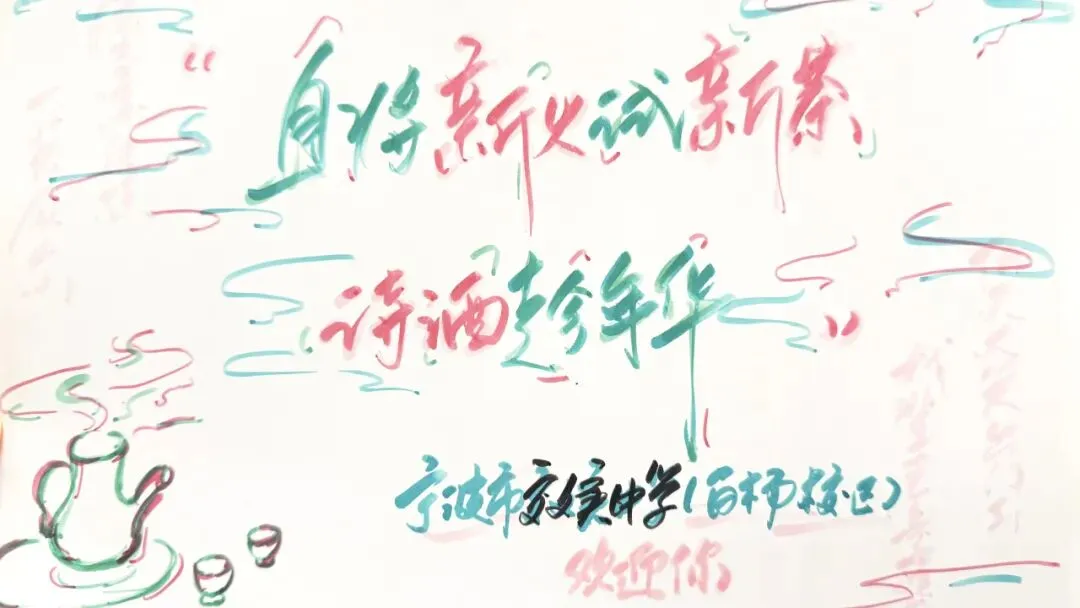 “且将新火试新茶
诗酒趁年华”
宁波市效实中学(白杨校区)
欢迎你